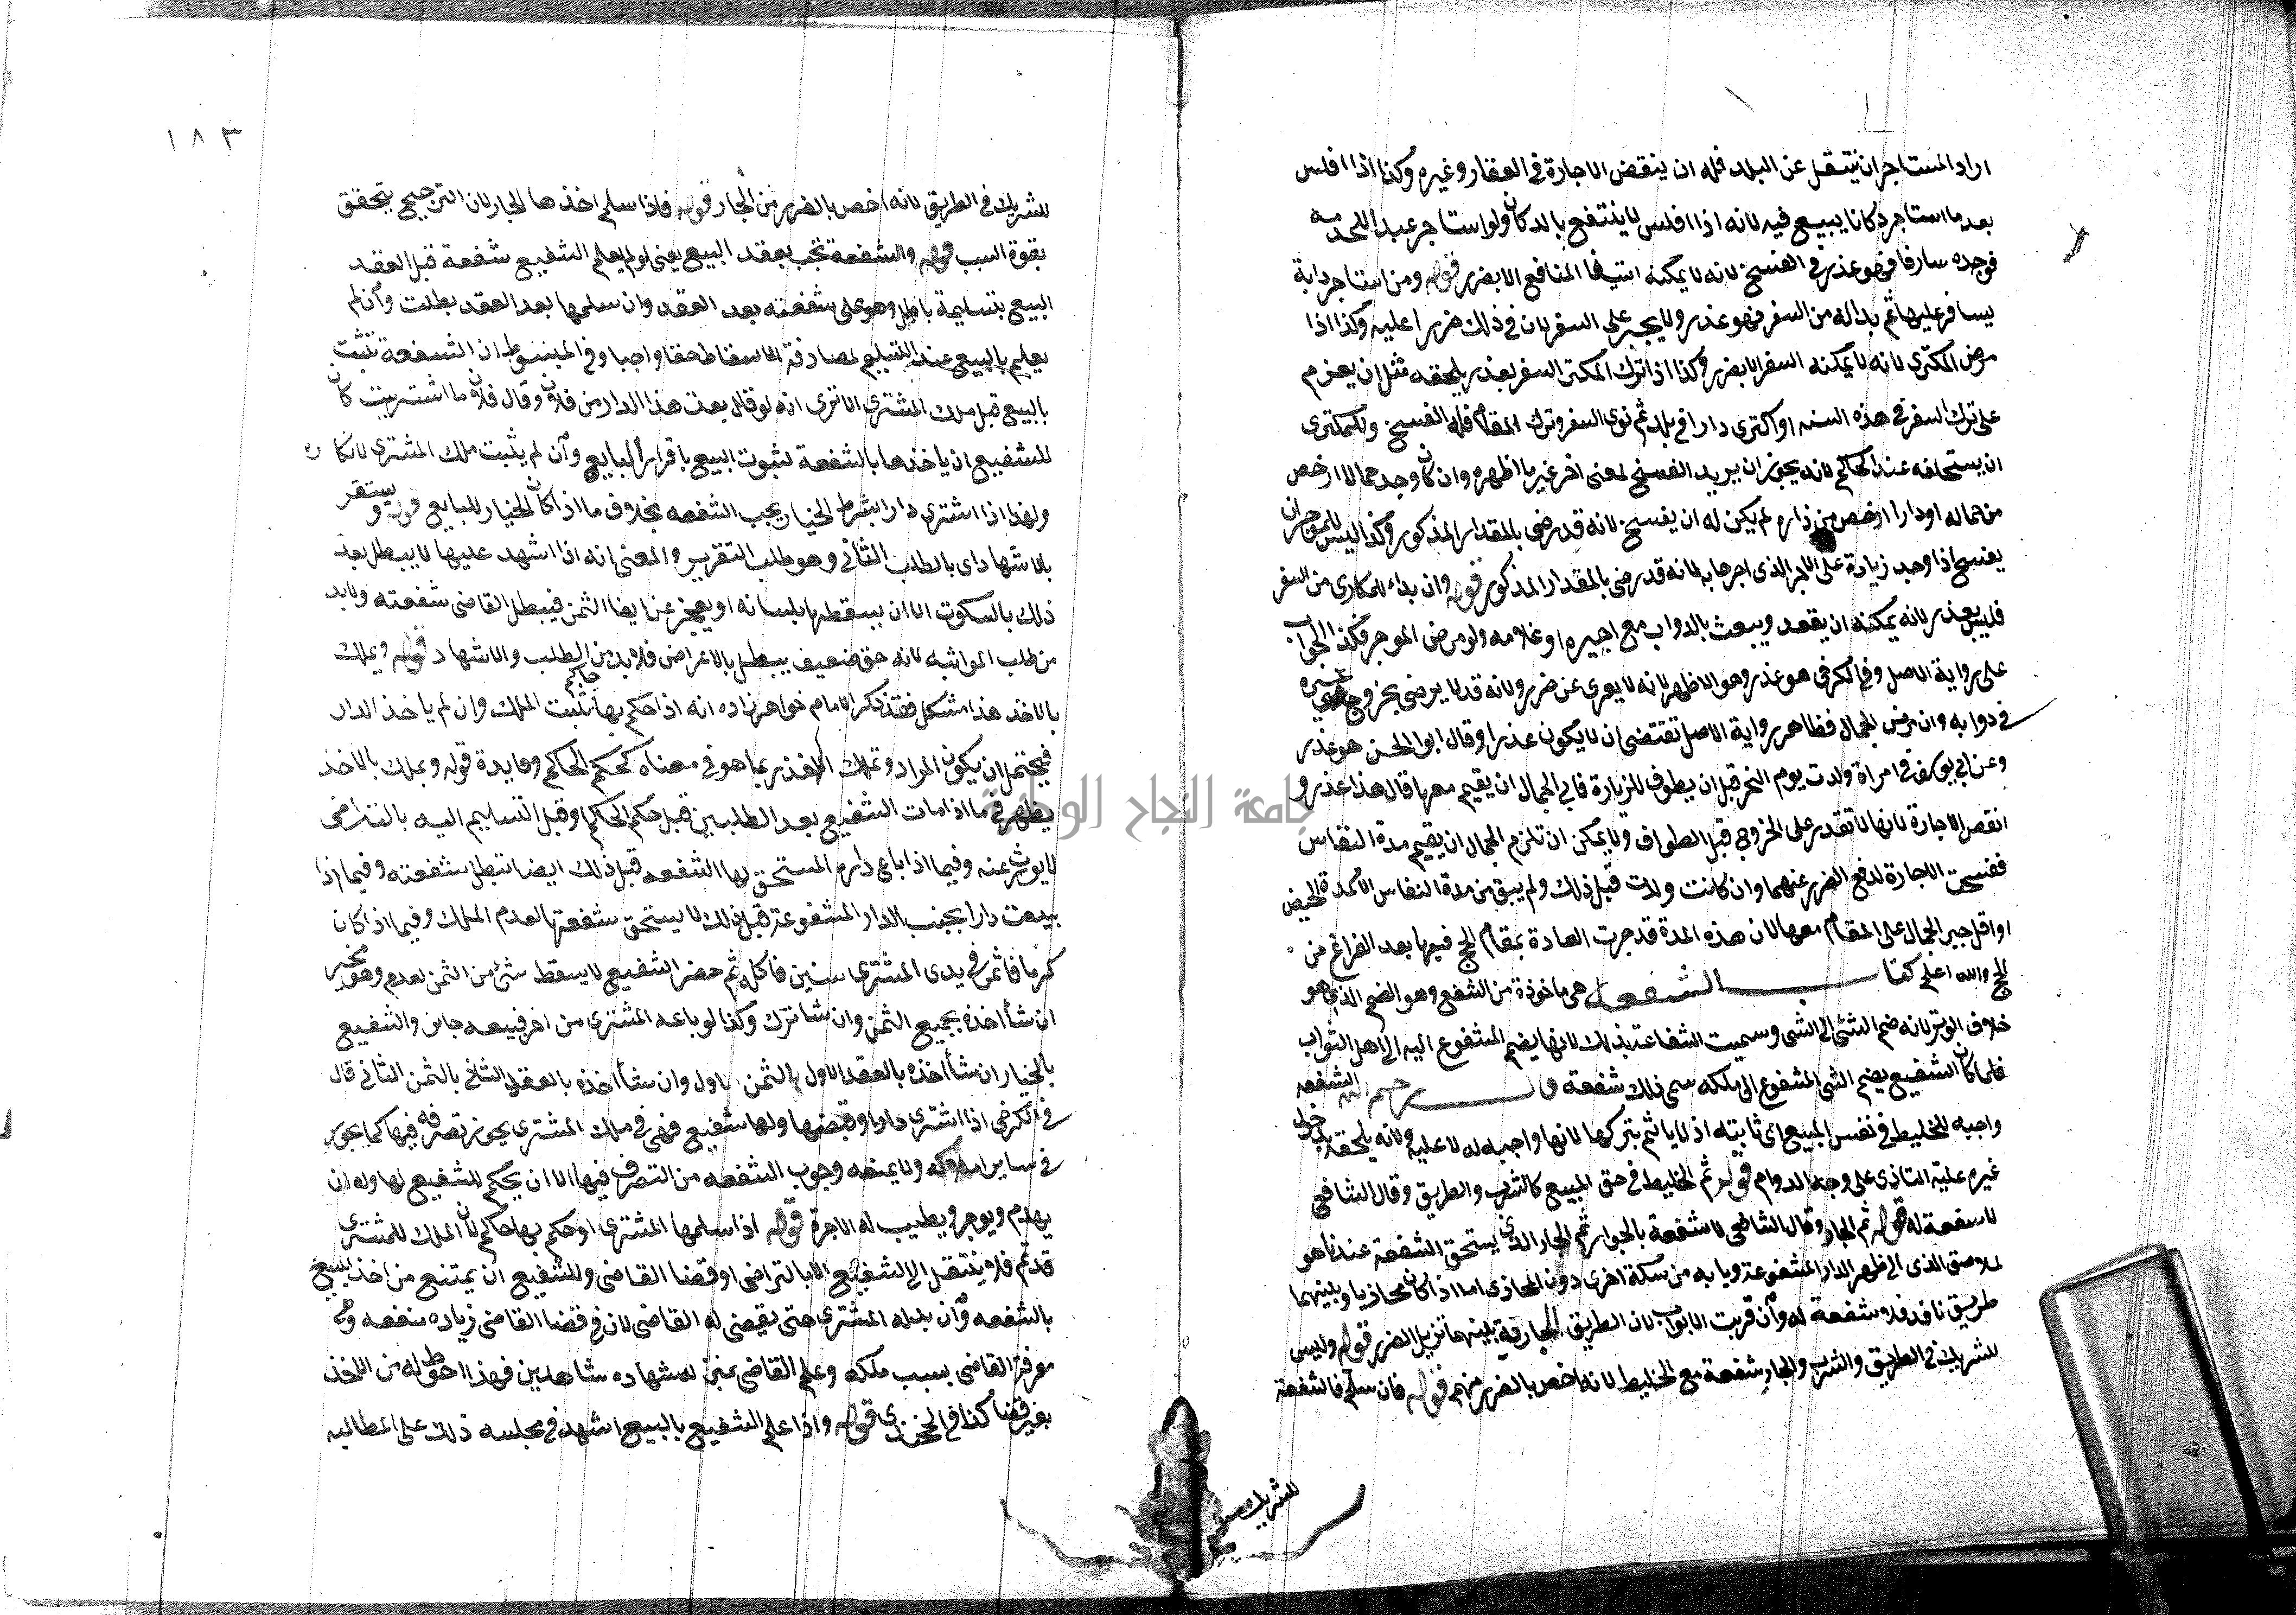 اراد المستاجر ان ينتقل عن البلد فله ان ينقض الاجارة في العقار وغيره وكذا اذا افلس
بعد ما استاجر دكانا يبيع فيه لانه اذا افلس لا ينتفع بالدكان ولو استاجر عبدا للخدمه
فوجده سارقا فهو عذر في الفسخ لانه لا يمكنه استيفا المنافع الا بضرر قوله ومن استاجر دابة
يسافر عليها ثم بدا له من السفر فهو عذر ولا يجبر على السفر لان في ذلك ضررا عليه وكذا اذا
مرض المكتري لانه لا يمكنه السفر الا بضرر وكذا اذا ترك المكتري السفر بعذر يلحقه مثل ان يعزم
على ترك السفر في هذه السنه او اكترى دارا في بلد ثم نوى السفر وترك المقام فله الفسخ وللمكترى
ان يستحلفه عند الحاكم لانه يجوز ان يريد الفسخ لمعنى اخر غير ما اظهره وان كان وجد جمالا ارخص
من جماله او دارا ارخص من داره لم يكن له ان يفسخ لانه قد رضى بالمقدار المذكور وكذا ليس للموجر ان
يفسخ اذا وجد زيادة على الاجر الذى اجرها به لانه قد رضى بالمقدار المذكور قوله وان بداء للمكارى من السفر
فليس بعذر لانه يمكنه ان يقعد ويبعث بالدواب مع اجيره او غلامه ولو مرض الموجر فكذا الجواب
على رواية الاصل وفي الكرخى هو عذر وهو الاظهر لانه لا يعرى عن ضرر ولانه قد لا يرضى بخروج غيره
في دوابه وان مرض الجمال فظاهر رواية الاصل تقتضى ان لا يكون عذرا وقال ابو الحسن هو عذر
وعن ابي يوسف في امراة ولدت يوم النحر قبل ان يطوف للزيارة فابى الجمال ان يقيم معها قال هذا عذر و
انقض الاجارة لانها لا تقدر على الخروج قبل الطواف ولا يمكن ان تلزم الجمال ان يقيم مدة النفاس
ففسخت الاجارة لدفع الضرر عنهما وان كانت ولدت قبل ذلك ولم يبق من مدة النفاس الا كمدة الحيض
او اقل جبر الجمال على المقام معها لان هذه المدة قد جرت العادة بمقام الحج فيها بعد الفراغ من
الحج والله اعلم كتاب الشفعه هى ماخوذة من الشفع وهو الضم الذي هو
خلاف الوتر لانه ضم الشئ الى الشى وسميت الشفاعة بذلك لانها يضم المشفوع اليه الى اهل الثواب
فلما كان الشفيع يضم الشى المشفوع الى ملكه سمى ذلك شفعة قال رحمه الله الشفعه
واجبه للخليط في نفس المبيع اى ثابته اذ لا ياثم بتركها لانها واجبه له لا عليه ولانه يلحقه بدخول
غيره عليه التاذى على وجه الدوام قوله ثم الخليط في حق المبيع كالشرب والطريق وقال الشافعى
لا شفعة له قوله ثم الجار وقال الشافعى لا شفعة بالجوار ثم الجار الذى يستحق الشفعة عندنا هو
الملاصق الذى الى ظهر الدار المشفوعة وبابه من سكة اخرى دون المحاذى اما اذا كان محاذيا وبينهما
طريق نافد فلا شفعة له وان قربت الابواب لان الطريق الفارقة بينهما تزيل الضرر قوله وليس
للشريك في الطريق والشرب والجار شفعة مع الخليط لانه اخص بالضرر منهم قوله فان سلم فالشفعة
للشريك
١٨٣
للشريك في الطريق لانه اخص بالضرر من الجار قوله فاذا سلم اخذها الجار لان الترجيح يتحقق
بقوة السبب قوله والشفعة تجب بعقد البيع يعنى لو لم يعلم الشفيع شفعة قبل العقد
البيع بتسليمة باطل وهو على شفعته بعد العقد وان سلمها بعد العقد بطلت وان لم
يعلم بالبيع عند التسليم لمصادفة الاسقاط حقا واجبا وفي المبسوط ان الشفعة تثبت
بالبيع قبل ملك المشترى الا ترى انه لو قال بعت هذا الدار من فلان وقال فلان ما اشتريت كان
للشفيع ان ياخذها بالشفعة لثبوت البيع باقرار البايع وان لم يثبت ملك المشترى لانكاره
ولهذا اذا اشترى دارا بشرط الخيار يجب الشفعه بخلاف ما اذا كان الخيار للبايع قوله ويستقر
بالاشهاد اى بالطلب الثانى وهو طلب التقرير والمعنى انه اذا اشهد عليها لا يبطل بعد
ذلك بالسكوت الا ان يسقطها بلسانه او يعجز عن ايفا الثمن فيبطل القاضى شفعته ولابد
من طلب المواثبه لانه حق ضعيف يبطل بالاعراض فلابد من الطلب والاشهاد قوله ويملك
بالاخد هذا مشكل فقد ذكر الامام خواهر زاده انه اذا حكم بها حاكم تثبت الملك وان لم ياخذ الدار
فيحتمل ان يكون المراد وتملك الاخذ ربما هو في معناه كحكم الحاكم وفايدة قوله ويملك بالاخذ
يظهر في ما اذا مات الشفيع بعد الطلبين قبل حكم الحاكم او قبل التسليم اليه بالتراضى
لا يورث عنه وفيما اذا باع داره المستحق بها الشفعه قبل ذلك ايضا تبطل شفعته وفيما اذا
بيعت دارا بجنب الدار المشفوعة قبل ذلك لا يستحق شفعتها لعدم الملك وفيما اذا كان
كرما فاثمر في يدى المشترى سنين فاكله ثم حضر الشفيع لا يسقط شئ من الثمن بعدم وهو مخير
ان شأ اخذه بجميع الثمن وان شا ترك وكذا لو باعه المشترى من اخر فبيعه جائز والشفيع
بالخيار ان شأ اخذه بالعقد الاول بالثمن الاول وان شأ اخذه بالعقد الثانى بالثمن الثانى قال
في الكرخى اذا اشترى دارا وقبضها ولها شفيع فهى في ملك المشترى يجوز تصرفه فيها كما يجوز
في ساير املاكه ولا يمنعه وجوب الشفعه من التصرف فيها الا ان يحكم للشفيع لها وله ان
يهدم ويوجر ويطيب له الاجرة قوله اذا سلمها المشترى او حكم بها حاكم لان الملك للمشترى
قد تم فلا ينتقل الى الشفيع الا بالتراضى او قضا القاضى وللشفيع ان يمتنع من اخذ المبيع
بالشفعه وان بذله المشترى حتى يقضى له القاضى لان في قضا القاضى زياده منفعه وهى
معرفة القاضى بسبب ملكه وعلم القاضى بمنزلة شهاده شاهدين فهذا احوط له من الاخذ
بغير قضا كذا في الخجندى قوله واذا علم الشفيع بالبيع اشهد في مجلسه ذلك على المطالبه
جامعة النجاح الوطنية